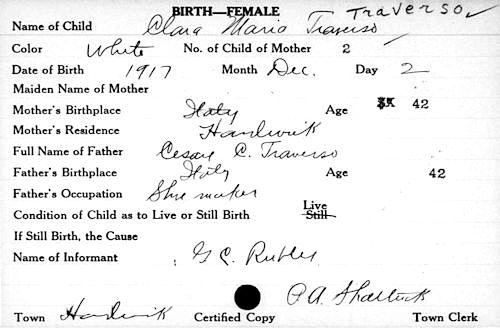 BIRTH—FEMALE Traverso ✓
Name of Child Clara Maria Traverso
Color White No. of Child of Mother 2
Date of Birth 1917 Month Dec. Day 2
Maiden Name of Mother
Mother's Birthplace Italy Age 42
Mother's Residence Hardwick
Full Name of Father Cesare C. Traverso
Father's Birthplace Italy Age 42
Father's Occupation Shoe maker
Condition of Child as to Live or Still Birth Live Still
If Still Birth, the Cause
Name of Informant G C. Rublee
P. A. Shattuck
Town Hardwick Certified Copy Town Clerk